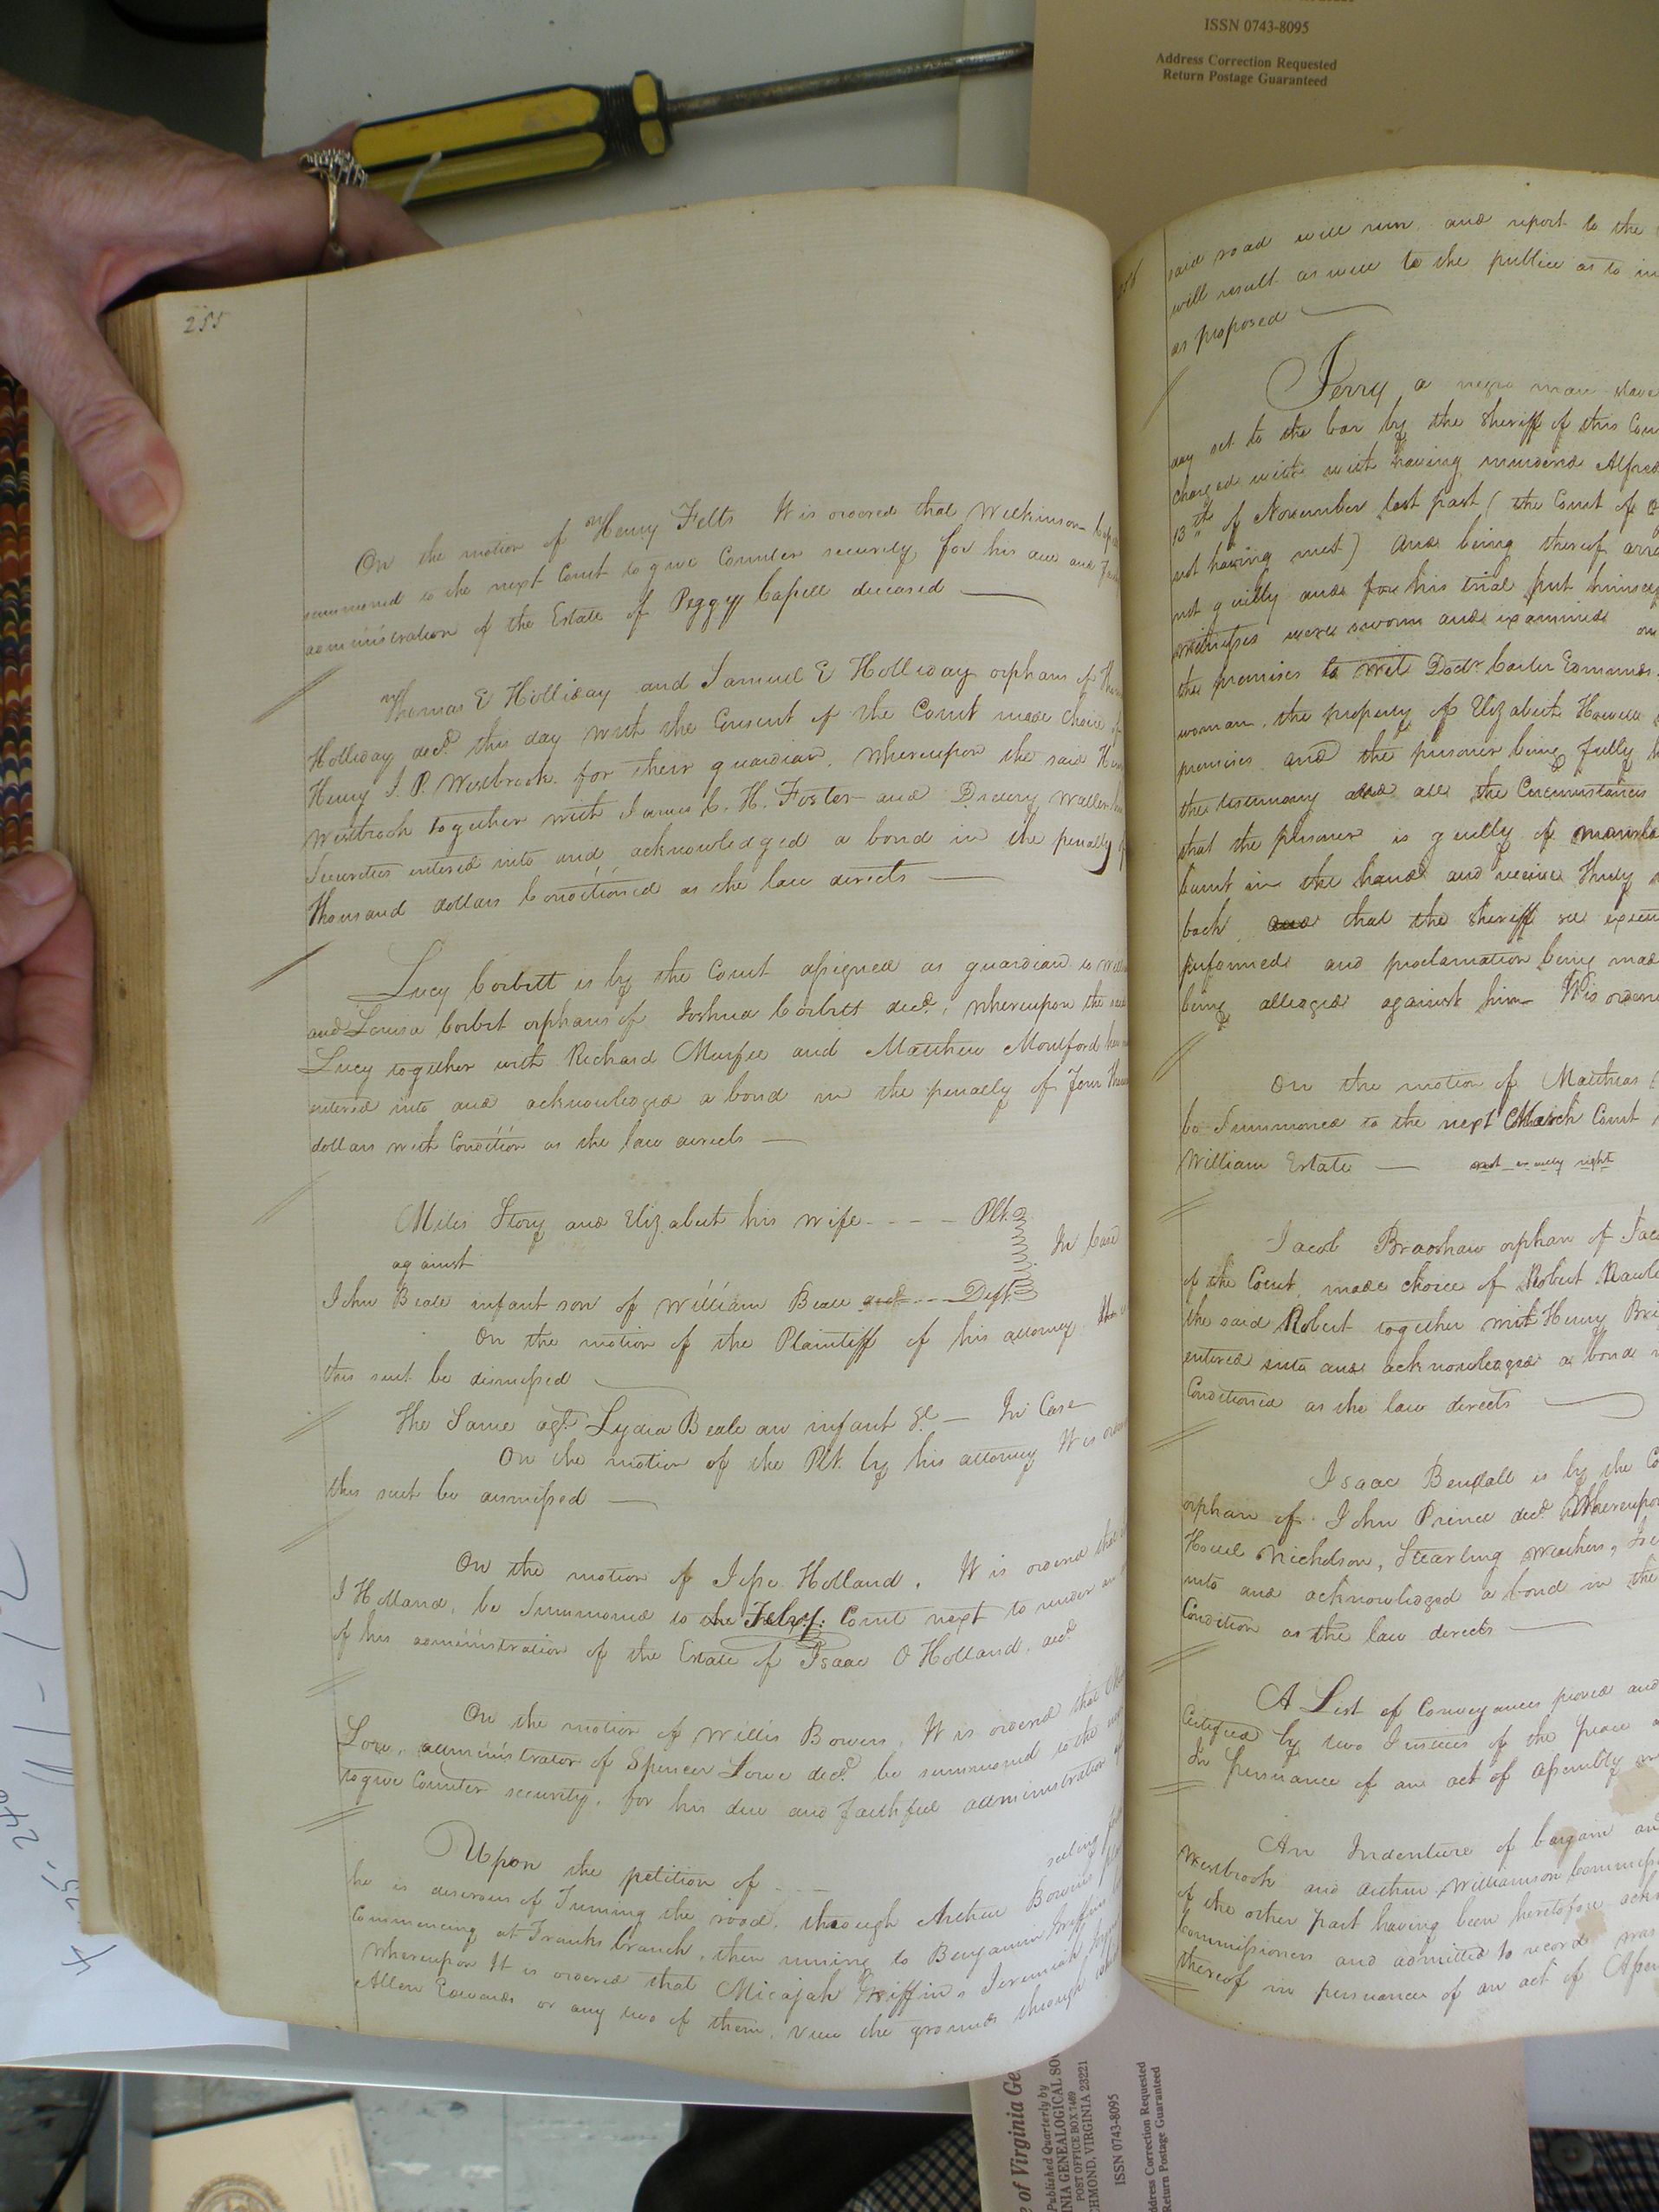 ISSN 0743-8095
Address Correction Requested
Return Postage Guaranteed
255
On the motion of Henry Felts It is ordered that Wilkinson
summoned to the next Court to give Counter security for his due and
administration of the Estate of Peggy Capell deceased
Thomas E Holliday and Samuel E Holliday orphans of
Holliday decd. this day with the Consent of the Court made choice of
Henry J. P. Westbrook for their guardian, whereupon the said
Westbrook together with James C. H. Foster and Drewry Waller
Securities entered into and acknowledged a bond in the penalty of
Thousand dollars Conditioned as the law directs
Lucy Corbett is by the Court assigned as guardian to
and Louisa Corbet orphans of Joshua Corbitt decd., whereupon the said
Lucy together with Richard Murfee and Matthew Moulford
entered into and acknowledged a bond in the penalty of Four
dollars with Condition as the law directs
Miles Story and Elizabeth his wife - - - - Plt.
against
In Case
John Beale infant son of William Beale - - - Deft.
On the motion of the Plaintiff of his attorney
this suit be dismissed
The Same agt. Lydia Beale an infant &c — In Case
On the motion of the Plt. by his attorney It is
this suit be dismissed
On the motion of Jesse Holland, It is ordered that
J Holland, be Summoned to the Feby: Court next to render an
of his administration of the Estate of Isaac O Holland, decd.
On the motion of Willis Bowers, It is ordered that
Lowe, administrator of Spencer Lowe decd. be summoned to the
to give Counter security, for his due and faithful administration
Upon the petition of - - - seting
he is desirous of Turning the road, through Arthur Bowers
Commencing at Franks branch, then running to Benjamin Griffin
whereupon It is ordered that Micajah Griffin, Jeremiah
Allen Edwards or any two of them, view the grounds through
said road will run, and report to the
will result as well to the public as to
as proposed
Jerry a negro man slave
day set to the bar by the Sheriff of this
charged with with having murdered Alfred
13th of November last past ( the Court of
not having met ) and being thereof
not guilty and for his trial put himself
witnesses were sworn and examined
the premises to wit Doctr. Carter Edmunds
woman, the property of Elizabeth Howell
premises and the prisoner being fully
the testimony and all the Circumstances
that the prisoner is guilty of
burnt in the hand and receive Thirty
back and that the Sheriff
performed and proclamation being made
being alledged against him It is ordered
On the motion of Matthias
be Summoned to the next March Court
William Estate — not exactly right
Jacob Bradshaw orphan of
of the Court, made choice of Robert
the said Robert together with Henry
entered into and acknowledged a bond
Conditioned as the law directs
Isaac Bendall is by the
orphan of John Prince decd. Whereupon
Howel Nicholson, Stearling
into and acknowledged a bond in the
Condition as the law directs
A List of Conveyances proved and
Certified by two Justices of the peace
In pursuance of an act of Assembly
An Indenture of bargain and
Westbrook and Arthur Williamson
of the other part having been heretofore
Commissioners and admitted to record was
thereof in pursuance of an act of
of Virginia
Published Quarterly by
NIA GENEALOGICAL SO
POST OFFICE BOX 7469
CHMOND, VIRGINIA 23221
ISSN 0743-8095
Address Correction Requested
Return Postage Guaranteed